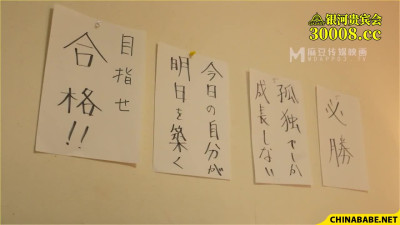 目指せ
合格!!
今日の自分が
明日を築く
孤独でしか
成長しない
必勝
銀河贵宾会
30008.cc
麻豆传媒映画
CHINABABE.NET